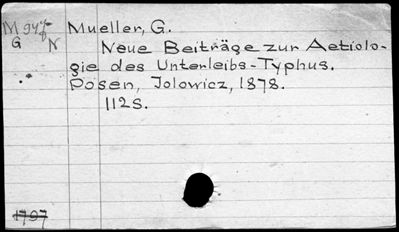 M947
G N
Mueller, G.
Neue Beiträge zur Aetiolo-
gie des Unterleibs-Typhus.
Posen, Jolowicz, 1878.
112S.
1797